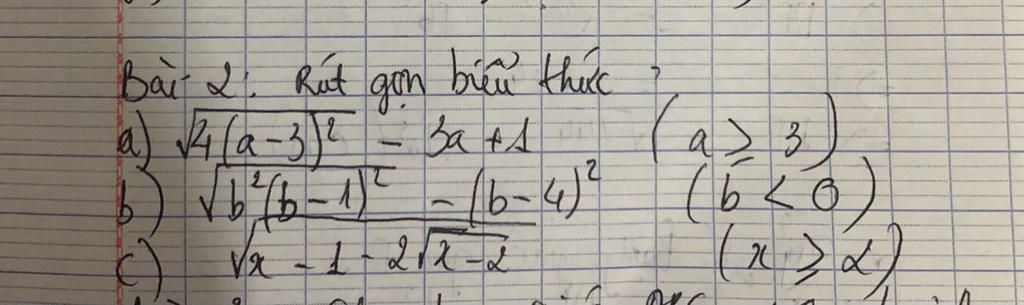 Bài 2: Rút gọn biểu thức
a) √4(a-3)² - 3a + 1 (a ≥ 3)
b) √b²(b-1)² - (b-4)² (b < 0)
c) √x - 1 - 2√x-2 (x ≥ 2)